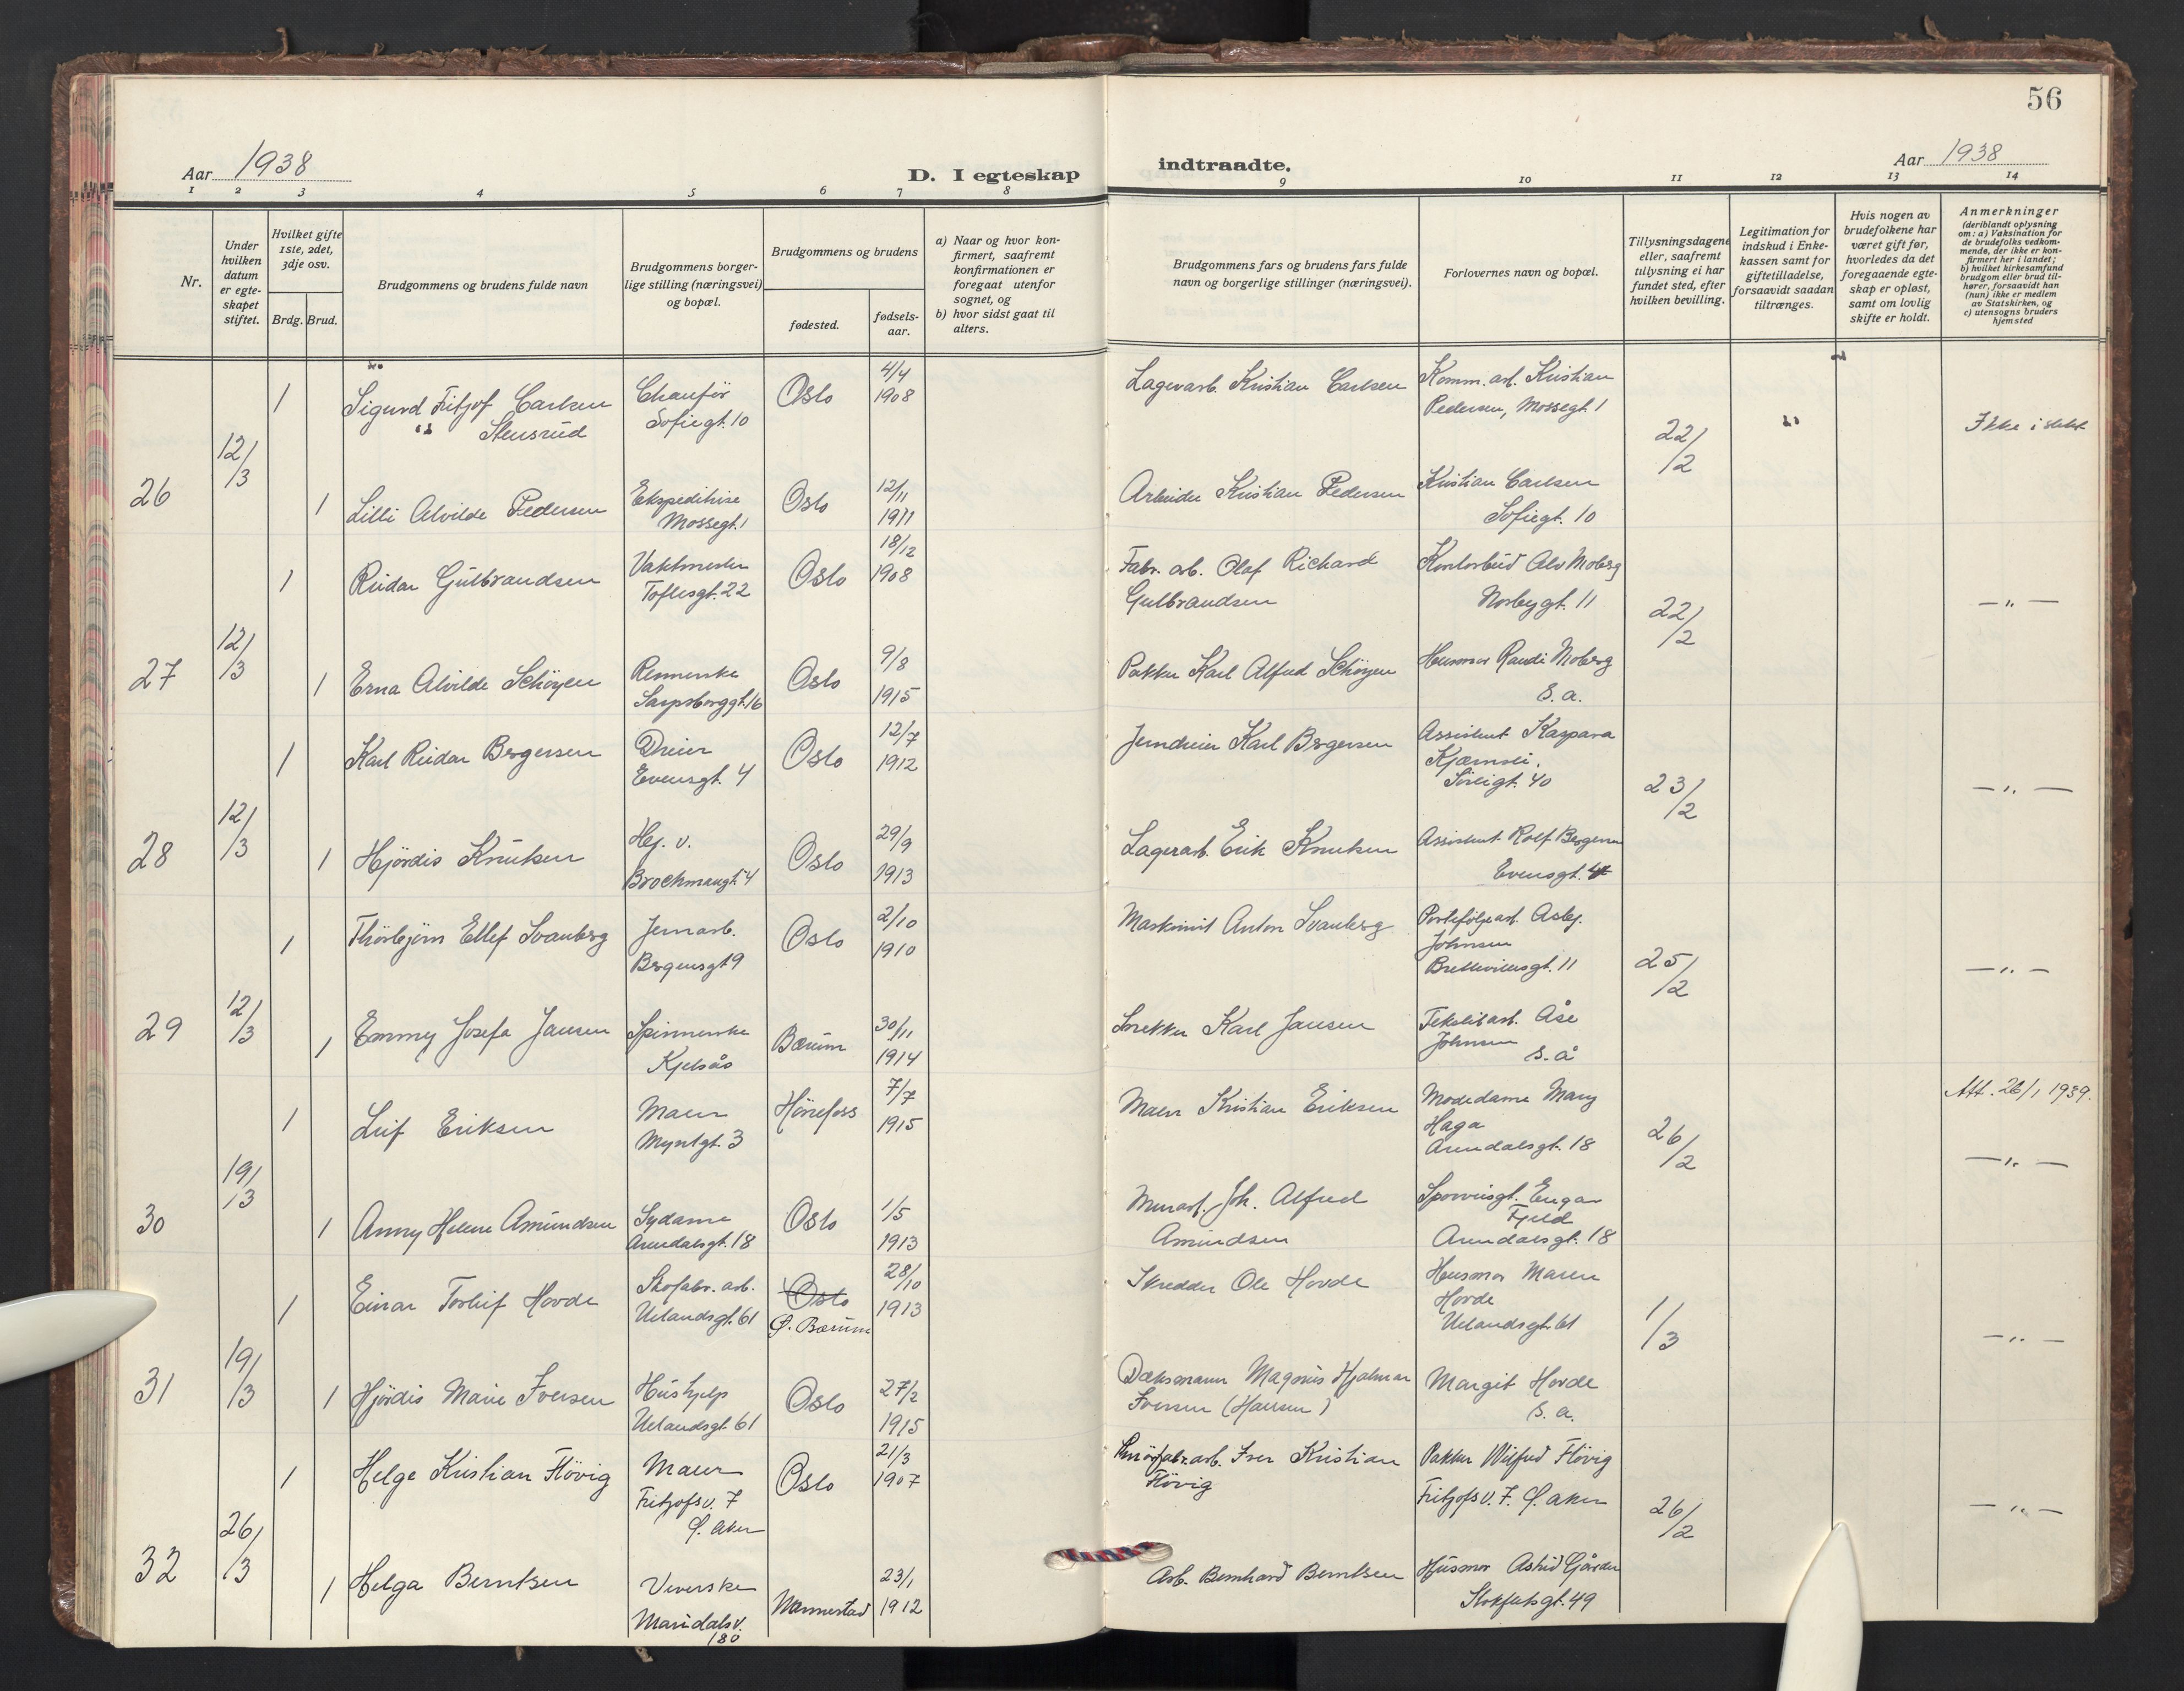 56
Aar 1938
D. I egteskap indtraadte.
Aar 1938
1 2 3 4 5 6 7 8 9 10 11 12 13 14
Nr.
Under hvilken datum er egteskapet stiftet.
Hvilket gifte 1ste, 2det, 3dje osv.
Brdg. Brud.
Brudgommens og brudens fulde navn
Brudgommens borgerlige stilling (næringsvei) og bopæl.
Brudgommens og brudens
fødested.
fødselsaar.
a) Naar og hvor konfirmert, saafremt konfirmationen er foregaat utenfor sognet, og
b) hvor sidst gaat til alters.
Brudgommens fars og brudens fars fulde navn og borgerlige stillinger (næringsvei).
Forlovernes navn og bopæl.
Tillysningsdagene eller, saafremt tillysning ei har fundet sted, efter hvilken bevilling.
Legitimation for indskud i Enkekassen samt for giftetilladelse, forsaavidt saadan tiltrænges.
Hvis nogen av brudefolkene har været gift før, hvorledes da det foregaaende egteskap er opløst, samt om lovlig skifte er holdt.
Anmerkninger
(deriblandt oplysning om: a) Vaksination for de brudefolks vedkommende, der ikke er konfirmert her i landet; b) hvilket kirkesamfund brudgom eller brud tilhører, forsaavidt han (hun) ikke er medlem av Statskirken, og c) utensogns bruders hjemsted
26 12/3
1 Sigurd Fritjof Carlsen Stensrud Chauför Sofiegt. 10 Oslo 4/4 1908 Lagerarb. Kristian Carlsen Komm. arb. Kristian Pedersen, Mossegt. 1 22/2 Ikke i slekt
1 Lilli Alvilde Pedersen Ekspeditrise Mossegt. 1 Oslo 12/11 1911 Arbeider Kristian Pedersen Kristian Carlsen Sofiegt. 10
27 12/3
1 Reidar Gulbrandsen Vaktmester Toftesgt. 22 Oslo 18/12 1908 Fabr. arb. Olaf Richard Gulbrandsen Kontorbud Alv Moberg Norbygt. 11 22/2 — " —
1 Erna Alvilde Schöyen Rennerske Sarpsborggt. 16 Oslo 9/8 1915 Pakker Karl Alfred Schöyen Husmor Randi Moberg S. a.
28 12/3
1 Karl Reidar Bergersen Dreier Evensgt. 4 Oslo 12/7 1912 Jerndreier Karl Bergersen Assistent Kaspara Kjærnsli, Sörligt. 40 23/2 — " —
1 Hjördis Knutsen Hej. v. Brochmangt. 4 Oslo 29/9 1913 Lagerarb. Erik Knutsen Assistent Rolf Bergersen Evensgt. 4
29 12/3
1 Thorbjörn Ellef Svanberg Jernarb. Bergensgt 9 Oslo 2/10 1910 Maskinist Anton Svanberg Porteföljearb. Asbj. Johnsen 11 25/2 — " —
1 Emmy Josefa Jansen Spinnerske Kjelsås Bærum 30/11 1914 Snekker Karl Jansen Tekstilarb. Åse Johnsen S. å
30 19/3
1 Leif Eriksen Murer Myntgt. 3 Hönefoss 7/7 1915 Murer Kristian Eriksen Modedame Mary Haga Arendalsgt. 18 26/2 Att. 26/1 1939. — " —
1 Anny Helene Amundsen Sydame Arendalsgt. 18 Oslo 1/5 1913 Murarb. Joh. Alfred Amundsen Fjeld Arendalsgt. 18
31 19/3
1 Einar Torleif Hovde Skofabr. arb. Uelandsgt. 61 Oslo Ö. Bærum 28/10 1913 Skredder Ole Hovde Husmor Maren Hovde Uelandsgt. 61 1/3 — " —
1 Hjördis Marie Iversen Hushjelp Uelandsgt. 61 Oslo 27/2 1915 Dæksmann Magnus Hjalmar Iversen (Hansen) Margit Hovde S. a.
32 26/3
1 Helge Kristian Flövig Maler Fritjofs v. 7 Ö. Aker Oslo 21/3 1907 Smörfabr. arb. Iver Kristian Flövig Pakker Wilfred Flövig Fritjofs v. 7. Ö. Aker 26/2 — " —
1 Helga Berntsen Veverske Maridalsv. 180 23/1 1912 Arb. Bernhard Berntsen Husmor Astrid 49